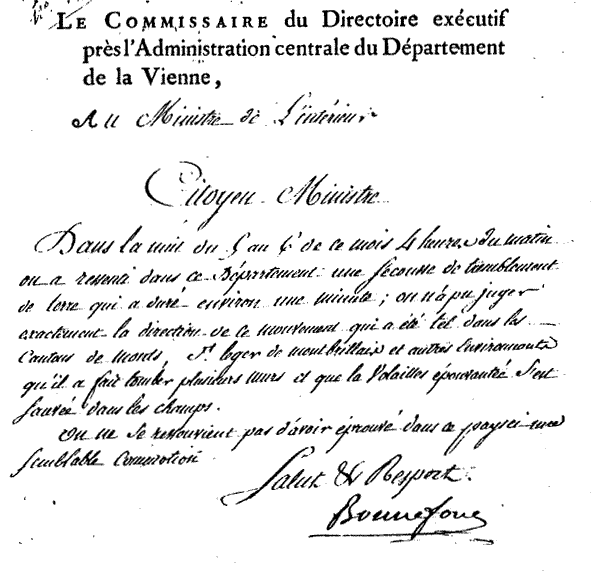 LE COMMISSAIRE du Directoire exécutif
près l'Administration centrale du Département
de la Vienne,
Au Ministre de L'intérieur
Citoyen Ministre
Dans la nuit du 5 au 6 de ce mois 4 heures du matin
on a ressenti dans ce Département une secousse de tremblement
de terre qui a duré environ une minute ; on n'a pu juger
exactement la direction de ce mouvement qui a été tel dans les
Cantons de monts, St. leger de montbrillais et autres Environnants
qu'il a fait tomber plusieurs murs et que la Volailles épouvantée s'est
sauvée dans les champs.
On ne se ressouvient pas d'avoir éprouvé dans ce pays ci une
semblable Commotion
Salut & Respect.
Bonnefons